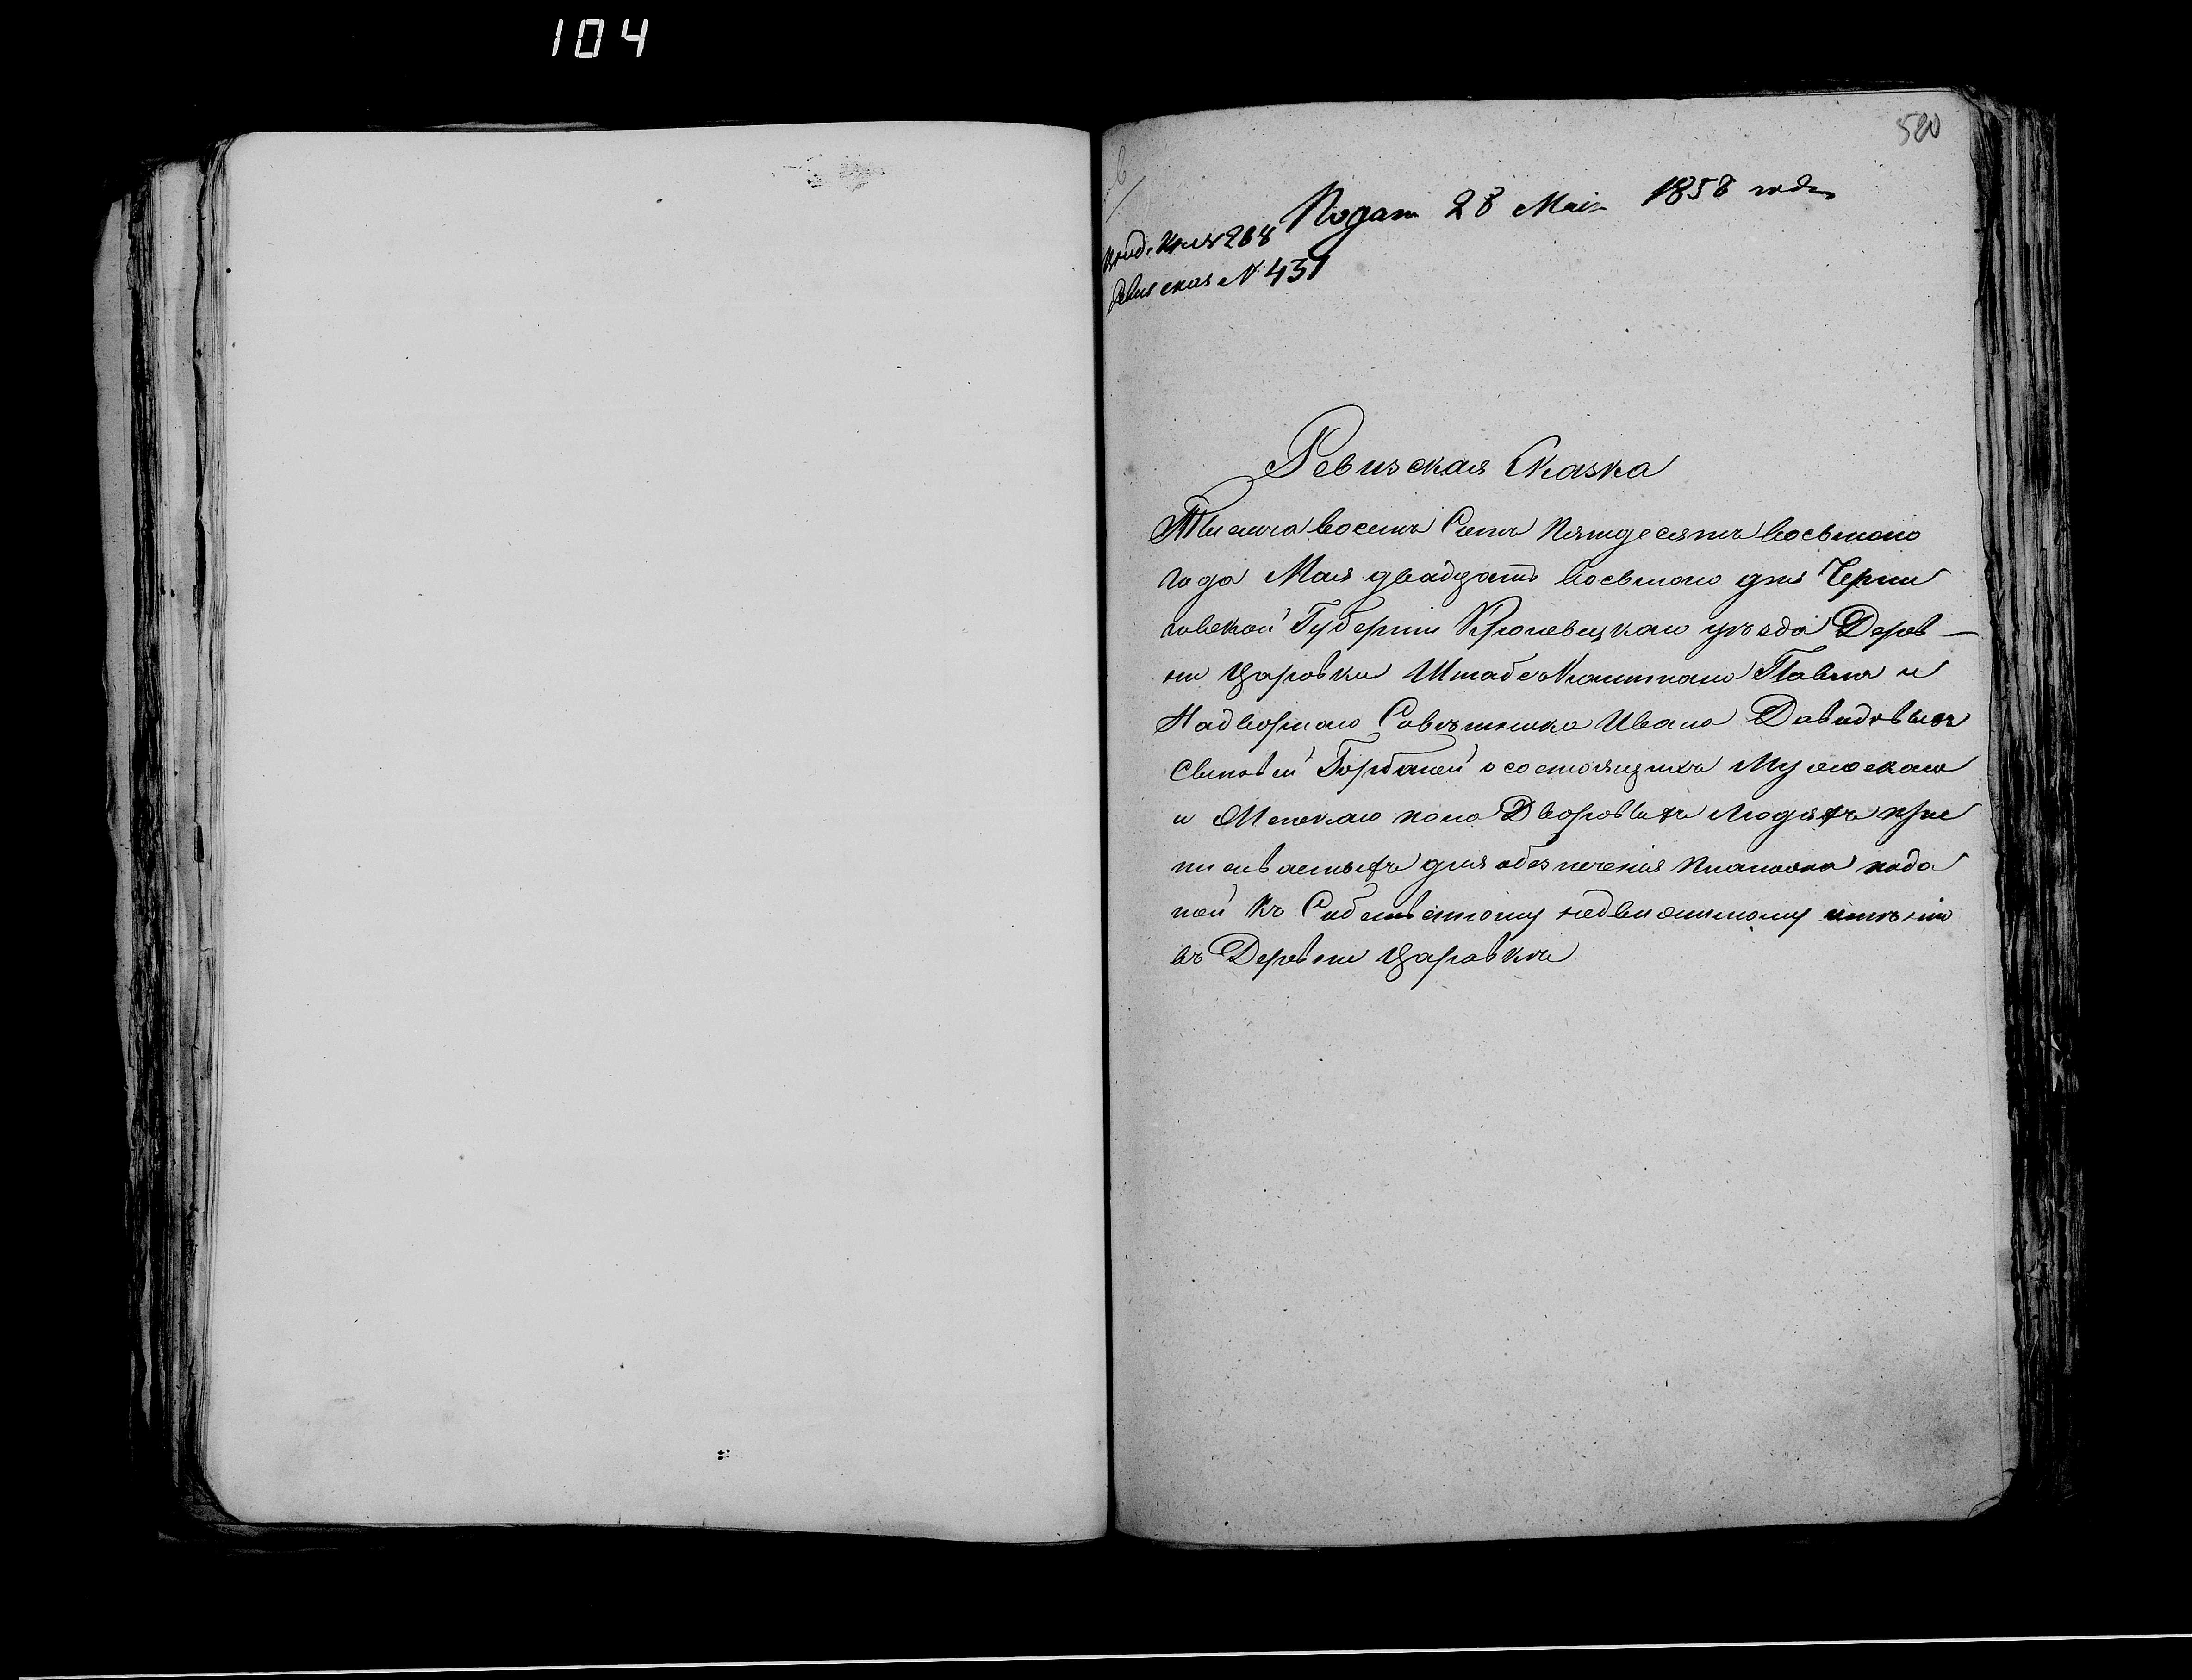 104
580
Подана 28 Мая 1858 года
268
Ревизская № 431
Ревизская Сказка
Тысяча восемь Сотъ Пятдесятъ восьмого
года Мая двадцать восьмого дня Черни
говской Губернии Кролевецкаго уезда Дерев —
ни Царовки Штабсъ Капитана Павла и
Надворнаго Советника Ивана Давидовыхъ
Сыновей Горбаней о состоящихъ Мужескаго
и Женскаго пола Дворовыхъ Людяхъ при
писываемыхъ для обезпечения Платежа пода
тей Къ Собственному недвижимому имѣнию
въ Деревни Царовкѣ